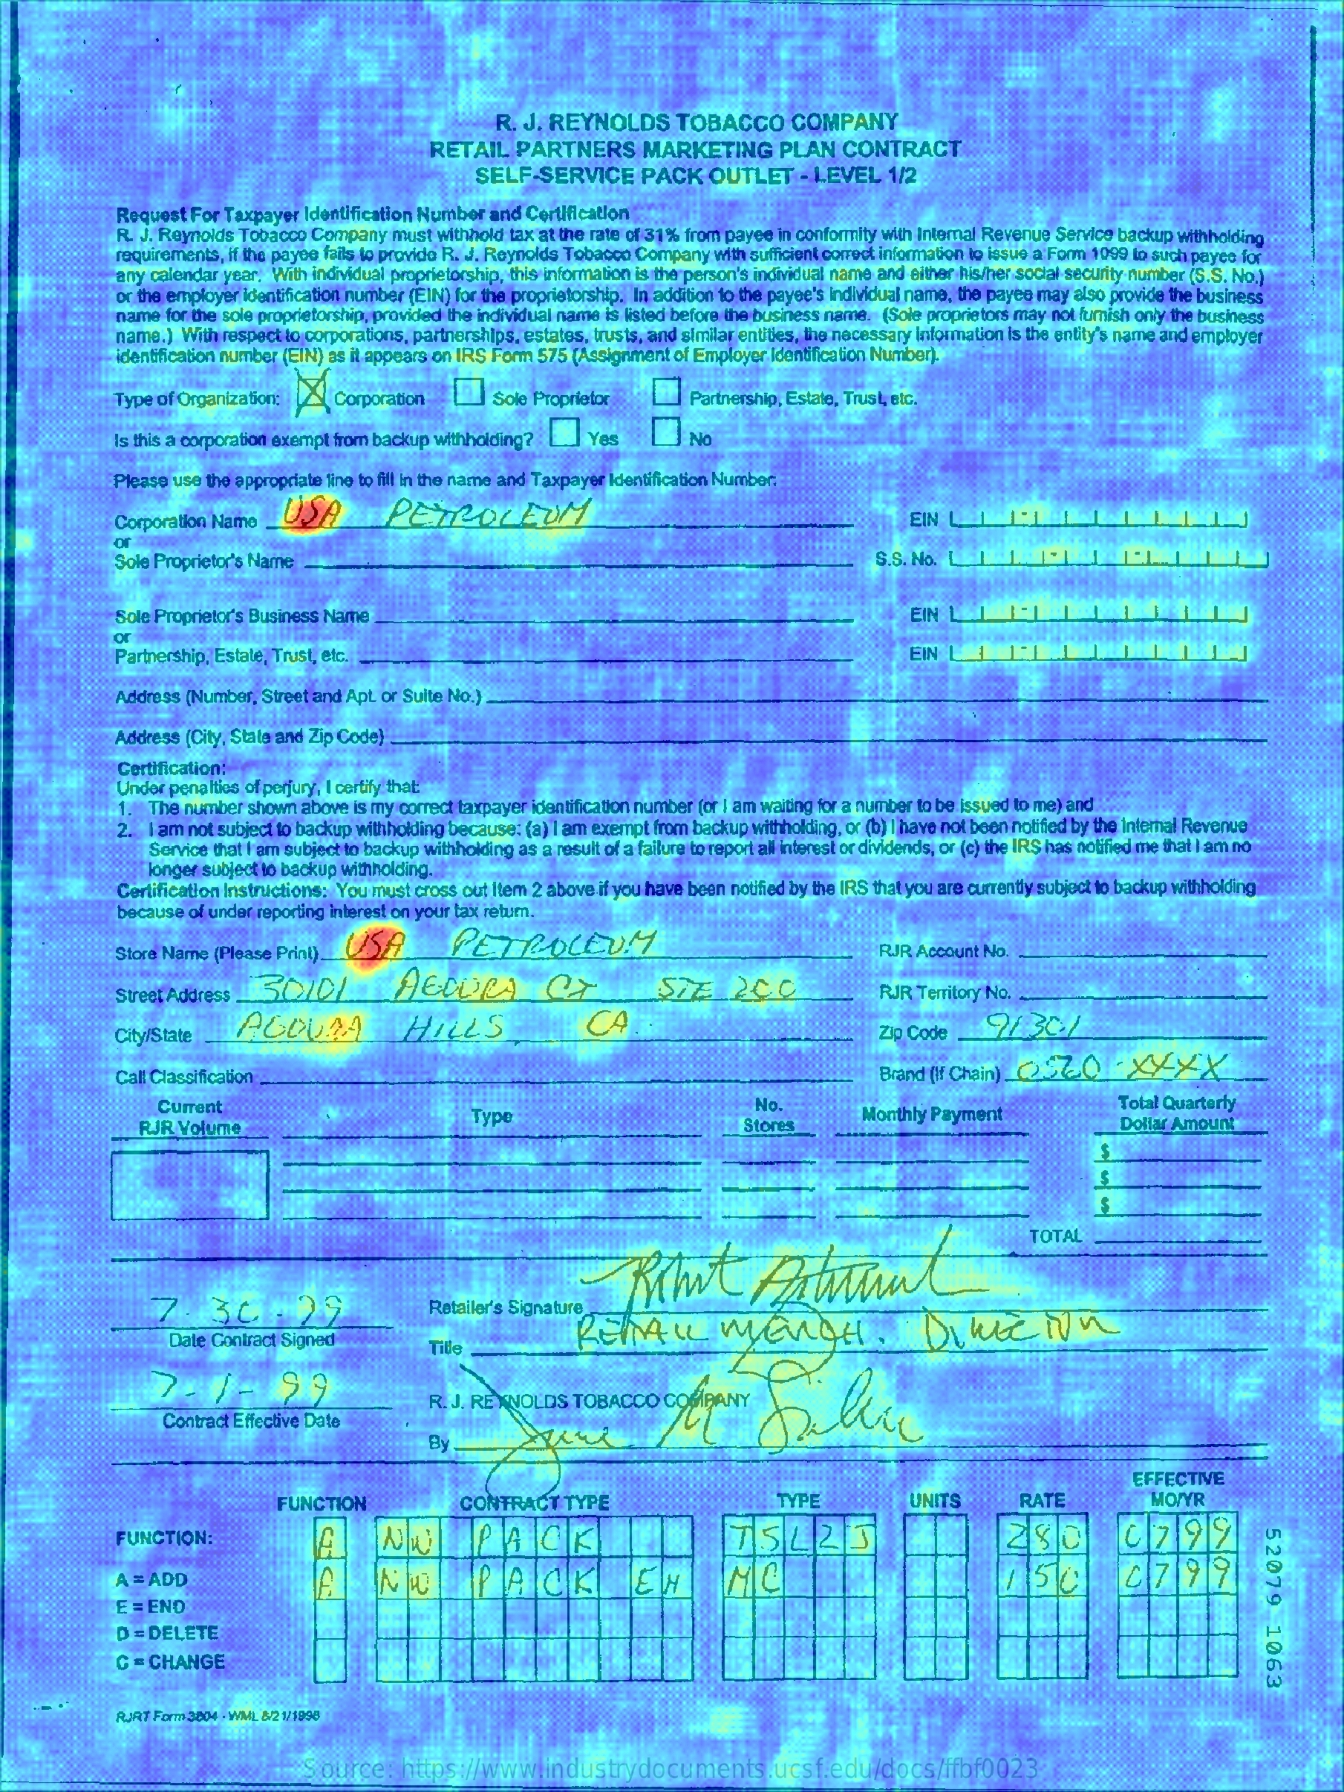 R. J. REYNOLDS TOBACCO COMPANY
RETAIL PARTNERS MARKETING PLAN CONTRACT
SELF-SERVICE PACK OUTLET - LEVEL 1/2
Request For Taxpayer Identification Number and Certification
R. J. Reynolds Tobacco Company must withhold tax at the rate of 31% from payee in conformity with Internal Revenue Service backup withholding
requirements, if the payee fails to provide R. J. Reynolds Tobacco Company with sufficient correct information to issue a Form 1099 to such payee for
any calendar year. With individual proprietorship, this information is the person's individual name and either his/her social security number (S.S. No.)
or the employer identification number (EIN) for the proprietorship. In addition to the payee's individual name, the payee may also provide the business
name for the sole proprietorship, provided the individual name is listed before the business name. (Sole proprietors may not furnish only the business
name.) With respect to corporations, partnerships, estates, trusts, and similar entities, the necessary information is the entity's name and employer
identification number (EIN) as it appears on IRS Form 575 (Assignment of Employer Identification Number).
Type of Organization: X Corporation Sole Proprietor Partnership, Estate, Trust, etc.
Is this a corporation exempt from backup withholding? Yes No
Please use the appropriate line to fill in the name and Taxpayer Identification Number:
Corporation Name USA PETROLEUM EIN
or
Sole Proprietor's Name S.S. No.
Sole Proprietor's Business Name EIN
or
Partnership, Estate, Trust, etc. EIN
Address (Number, Street and Apt. or Suite No.)
Address (City, State and Zip Code)
Certification:
Under penalties of perjury, I certify that:
1. The number shown above is my correct taxpayer identification number (or I am waiting for a number to be issued to me) and
2. I am not subject to backup withholding because: (a) I am exempt from backup withholding, or (b) I have not been notified by the Internal Revenue
Service that I am subject to backup withholding as a result of a failure to report all interest or dividends, or (c) the IRS has notified me that I am no
longer subject to backup withholding.
Certification Instructions: You must cross out Item 2 above if you have been notified by the IRS that you are currently subject to backup withholding
because of under reporting interest on your tax return.
Store Name (Please Print) USA PETROLEUM RJR Account No.
Street Address 30101 AGOURA CT STE 200 RJR Territory No.
City/State AGOURA HILLS, CA Zip Code 91301
Call Classification Brand (If Chain) 0520-XXXX
Current RJR Volume Type No. Stores Monthly Payment Total Quarterly Dollar Amount
$
$
$
TOTAL
7-30-99 Retailer's Signature
Date Contract Signed Title RETAIL MERCH. DIRECTOR
7-1-99 R. J. REYNOLDS TOBACCO COMPANY
Contract Effective Date By
FUNCTION CONTRACT TYPE TYPE UNITS RATE EFFECTIVE MO/YR
FUNCTION: A NW PACK TSL2J 280 0799
A = ADD A NW PACK EH MC 150 0799
E = END
D = DELETE
C = CHANGE
52079 1063
RJRT Form 3804 - WML 8/21/1998
Source: https://www.industrydocuments.ucsf.edu/docs/ffbf0023